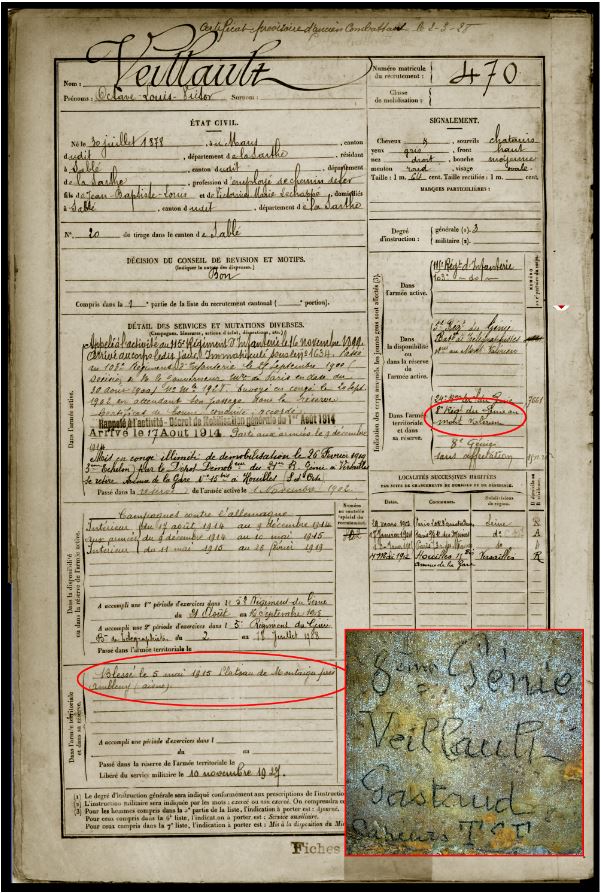 Certificat provisoire d'ancien Combattant le 2-3-28
Nom : Veillault
Prénoms : Octave Louis Victor Surnom :
Numéro matricule du recrutement : 470
Classe de mobilisation :
ÉTAT CIVIL.
Né le 30 juillet 1878, au Mans, canton
dudit, département de la Sarthe, résidant
à Sablé, canton dudit, département
de la Sarthe, profession d'employé de chemin de fer
fils de Jean-Baptiste-Louis et de Victorine Marie Lechappé, domiciliés
à Sablé, canton dudit, département de la Sarthe
N° 20 de tirage dans le canton de Sablé
SIGNALEMENT.
Cheveux sourcils chatains
yeux gris, front haut
nez droit, bouche moyenne
menton rond, visage ovale.
Taille : 1 m. 64 cent. Taille rectifiée : 1 m. cent.
MARQUES PARTICULIÈRES :
Degré d'instruction : générale (1). 3
militaire (2).
DÉCISION DU CONSEIL DE REVISION ET MOTIFS.
(Indiquer la nature des dispenses.)
Bon
Compris dans la 1e partie de la liste du recrutement cantonal ( portion).
DÉTAIL DES SERVICES ET MUTATIONS DIVERSES.
(Campagnes, blessures, actions d'éclat, décorations, etc.)
Dans l'armée active.
Appelé à l'activité au 115e Régiment d'Infanterie le 16 novembre 1899
Arrivé au corps ledit jour. Immatriculé sous le n° 4634. Passé
au 103e Régiment d'Infanterie le 27 septembre 1900
30 août 1900. Envoyé en congé le 20 Sept
1902 en attendant son passage dans la réserve
Certificat de bonne conduite accordé
Rappelé à l'activité - Décret de Mobilisation générale du 1er Août 1914
Arrivé le 17 Aout 1914. Parti aux armées le 9 décembre
1914
Mis en congé illimité de démobilisation le 26 Février 1919
3me Echelon) par le Dépôt Démob du 24e R. Génie à Versailles
se retire Avenue de la Gare n° 15 à Houilles (S. et Oise)
Passé dans la réserve de l'armée active le 1 Novembre 1902
Dans la disponibilité ou dans la réserve de l'armée active.
Campagnes contre l'allemagne
Intérieur du 17 août 1914 au 9 décembre 1914
aux armées du 9 décembre 1914 au 10 mai 1915
Intérieur du 11 mai 1915 au 26 février 1919
A accompli une 1re période d'exercices dans le 5e Régiment du Génie
du 21 Août au Septembre 1905
A accompli une 2e période d'exercices dans le 5e Régiment du Génie
du 2 au 18 Juillet 1908
Passé dans l'armée territoriale le
Dans l'armée territoriale et dans sa réserve.
Blessé le 5 mai 1915 Plateau de Montaigu près
Ambleny (aisne).
A accompli une période d'exercices dans l
du au
Passé dans la réserve de l'armée territoriale le
Libéré du service militaire le 10 novembre 1927.
Indication des corps auxquels les jeunes gens sont affectés (3).
Dans l'armée active.
115e Régt d'Infanterie
103e - do -
Dans la disponibilité ou dans la réserve de l'armée active.
5e Régt du Génie
au Mont Valérien
Dans l'armée territoriale et dans sa réserve.
8e Rég. du Génie au
mont Valérien
8e Génie
sans affectation
LOCALITÉS SUCCESSIVES HABITÉES
PAR SUITE DE CHANGEMENTS DE DOMICILE OU DE RÉSIDENCE.
Dates. Communes. Subdivisions de région.
Seine R
Houilles Versailles R
Avenue de la Gare
[1] Le degré d'instruction générale sera indiqué conformément aux prescriptions de l'instruction
[2] L'instruction militaire sera indiquée par les mots : exercé ou non exercé. On comprendra
[3] Pour les hommes compris dans la 2e partie de la liste, l'indication à porter est : Ajourné.
Pour ceux compris dans la 6e liste, l'indication à porter est : Service auxiliaire.
Pour ceux compris dans la 7e liste, l'indication à porter est : Mis à la disposition du Mi
Fiches
8ème Génie
Veillault
Gastaud
Sapeurs TSF